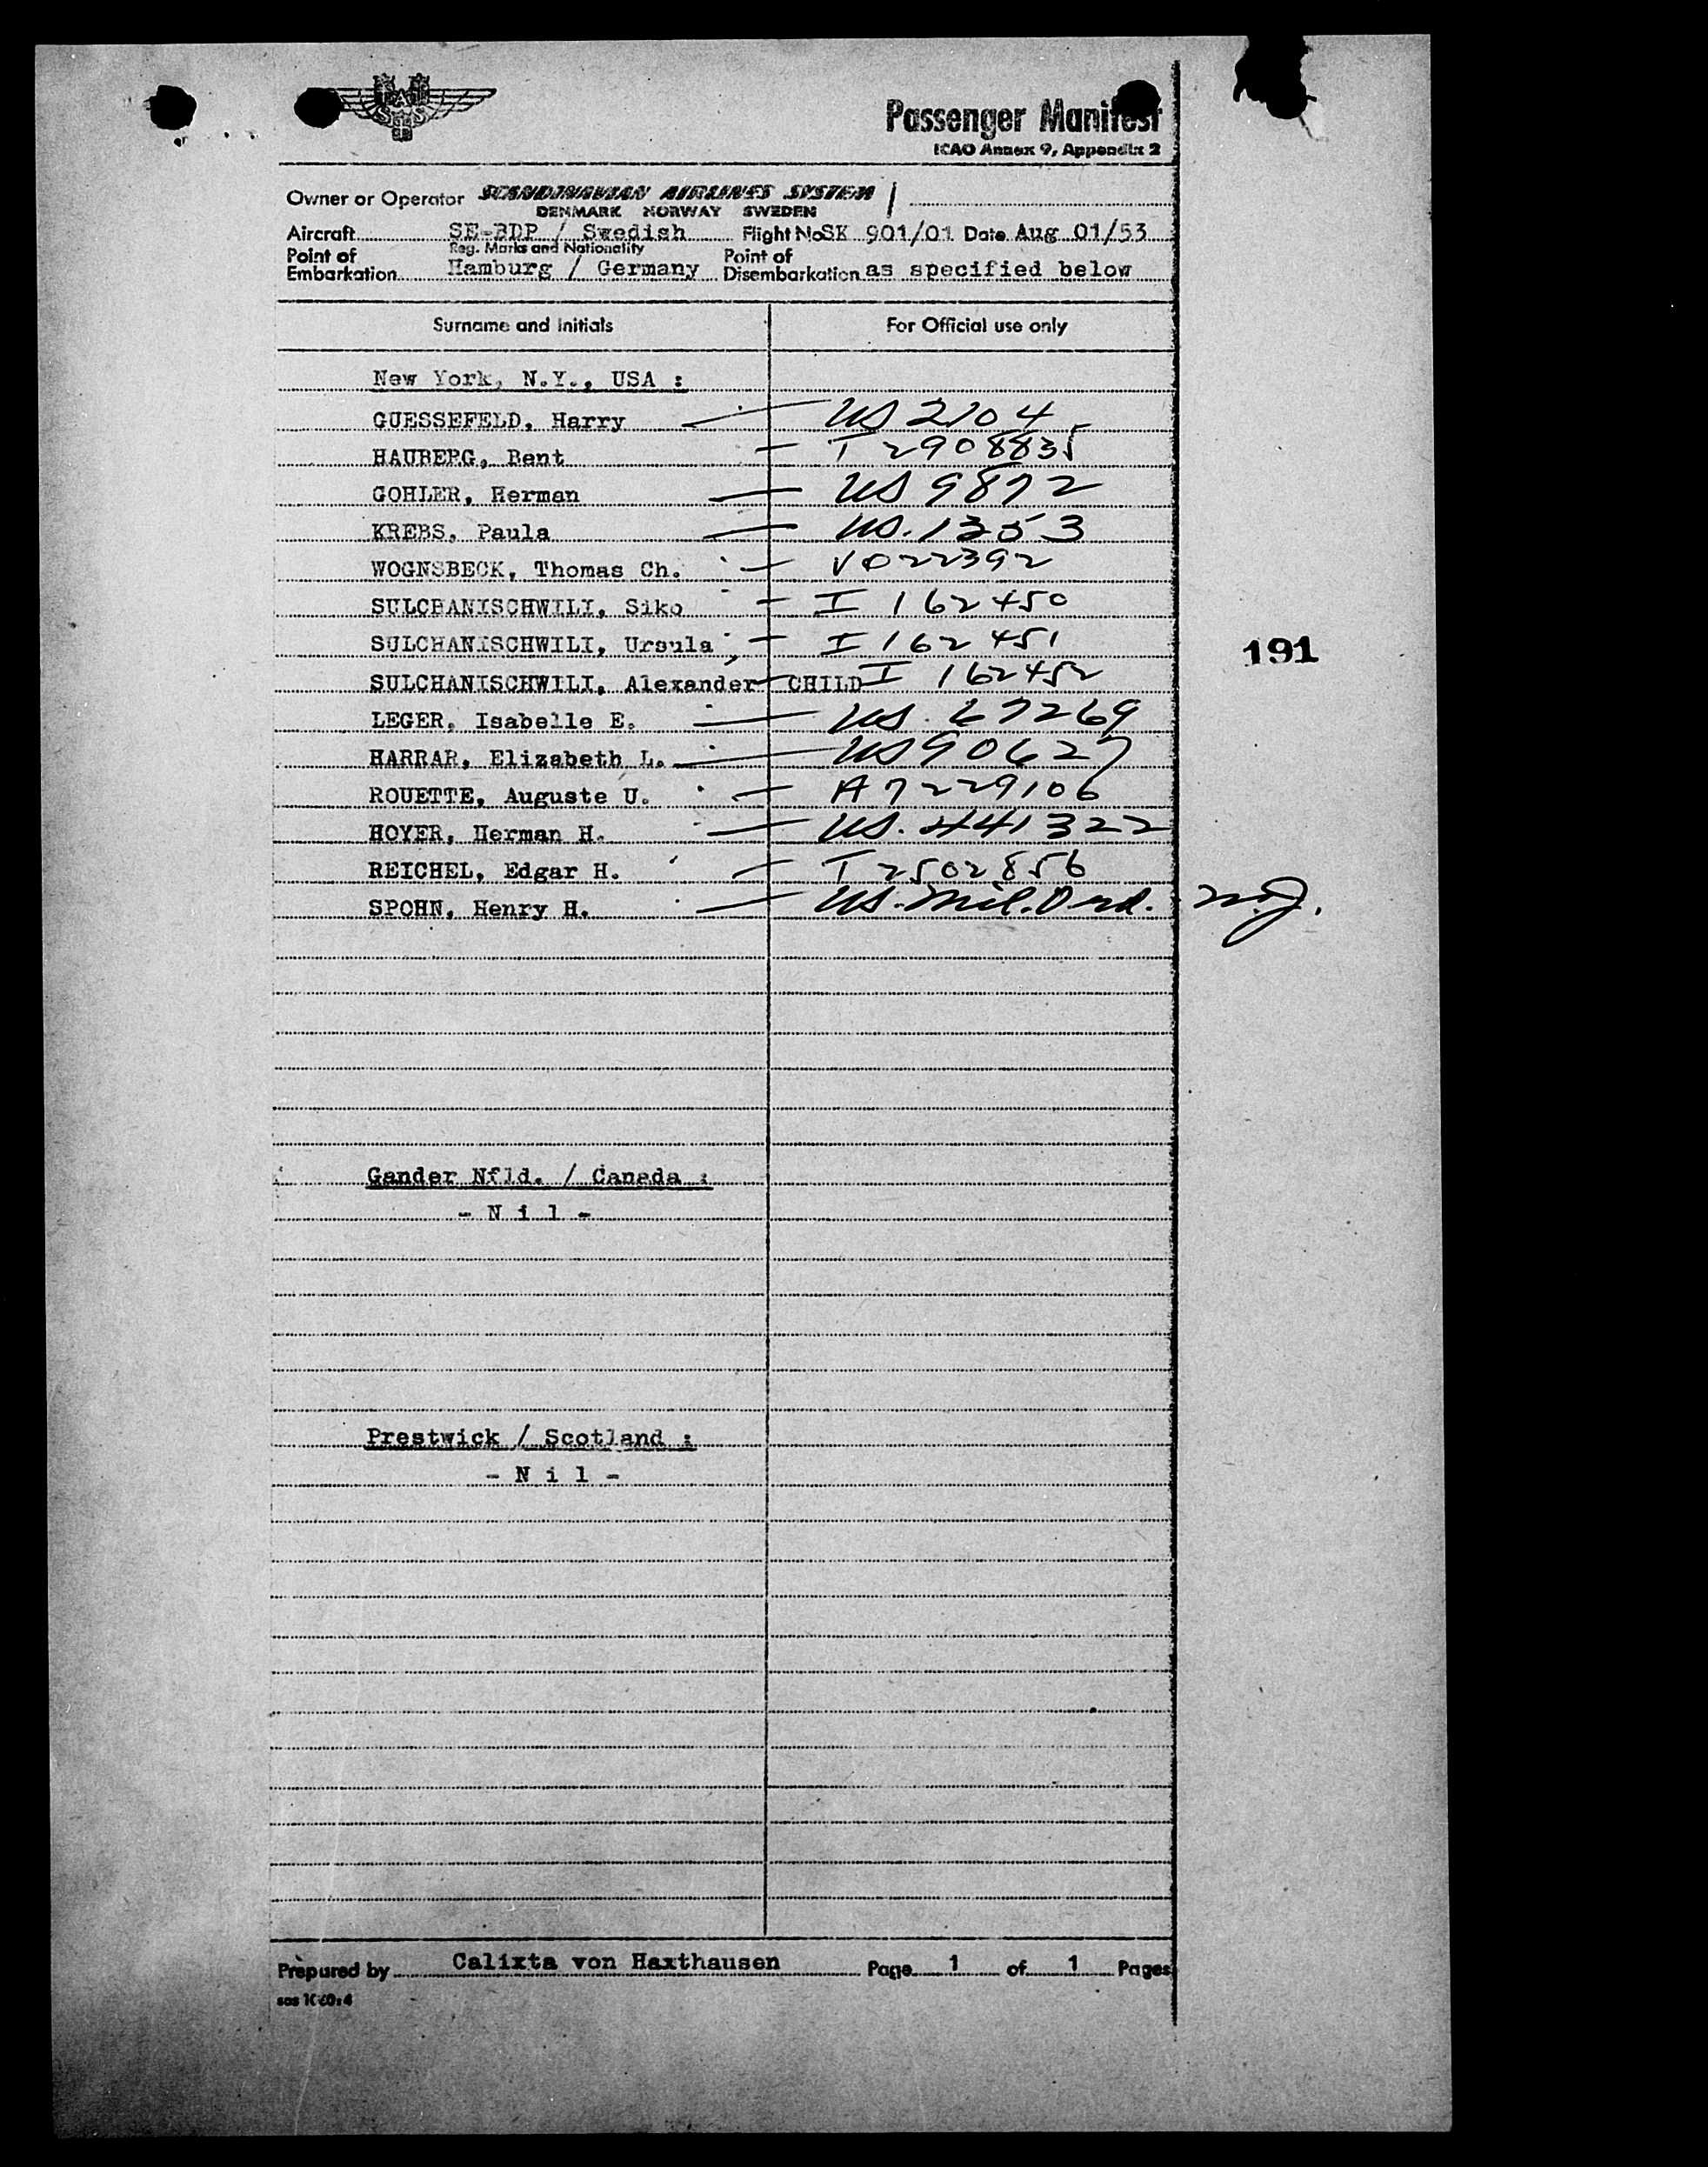 SAS
Passenger Manifest
ICAO Annex 9, Appendix 2
Owner or Operator SCANDINAVIAN AIRLINES SYSTEM
DENMARK NORWAY SWEDEN
Aircraft SE-BDP / Swedish Flight No SK 901/01 Date Aug 01/53
Reg. Marks and Nationality
Point of Embarkation Hamburg / Germany Point of Disembarkation as specified below
Surname and Initials For Official use only
New York, N.Y., USA :
GUESSEFELD, Harry US 2104
HAUBERG, Bent T 2908835
GOHLER, Herman US 9872
KREBS, Paula US. 1353
WOGNSBECK, Thomas Ch. V022392
SULCHANISCHWILI, Siko I 162450
SULCHANISCHWILI, Ursula I 162451
191
SULCHANISCHWILI, Alexander CHILD I 162452
LEGER, Isabelle E. US. 67269
HARRAR, Elizabeth L. US 90627
ROUETTE, Auguste U. A7229106
HOYER, Herman H. US. 441322
REICHEL, Edgar H. T 2502856
SPOHN, Henry H. US. Mil. Ord.
Gander Nfld. / Canada :
- N i l -
Prestwick / Scotland :
- N i l -
Prepared by Calixta von Haxthausen Page 1 of 1 Pages